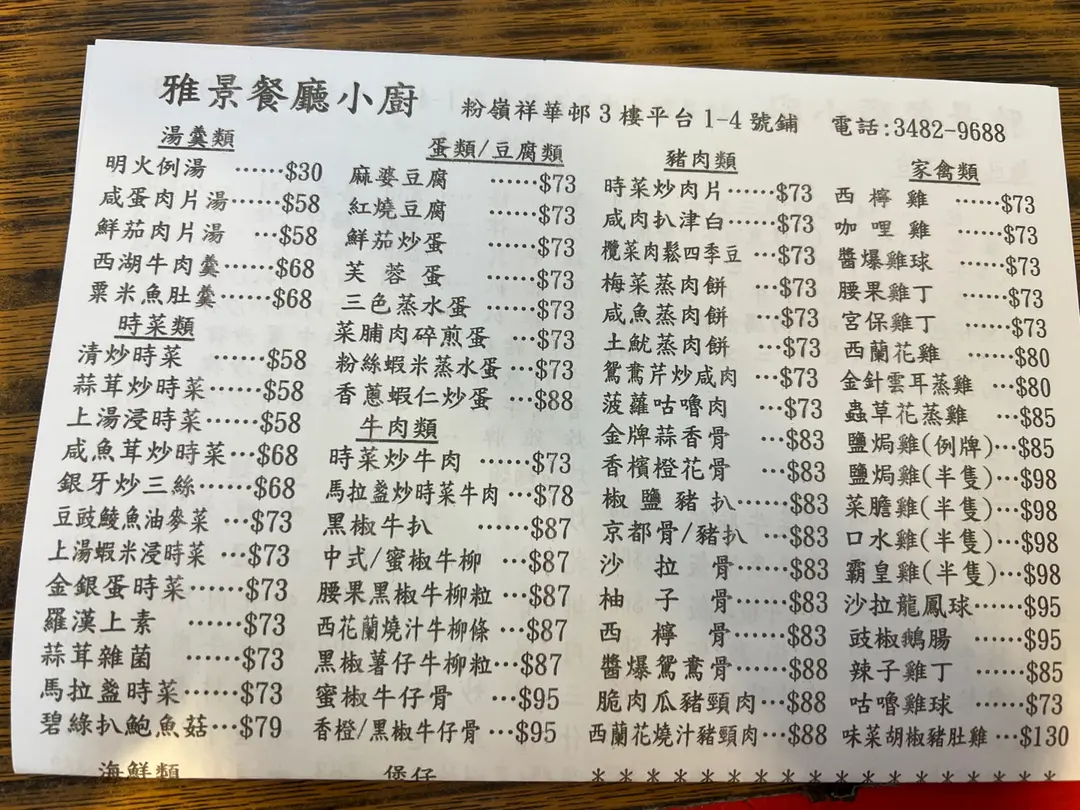 雅景餐廳小廚 粉嶺祥華邨3樓平台1-4號鋪 電話:3482-9688
湯羹類
明火例湯 ……$30
咸蛋肉片湯……$58
鮮茄肉片湯 …$58
西湖牛肉羹……$68
粟米魚肚羹……$68
時菜類
清炒時菜 ……$58
蒜茸炒時菜……$58
上湯浸時菜……$58
咸魚茸炒時菜…$68
銀牙炒三絲……$68
豆豉鯪魚油麥菜 …$73
上湯蝦米浸時菜 …$73
金銀蛋時菜……$73
羅漢上素 ……$73
蒜茸雜菌 ……$73
馬拉盞時菜……$73
碧綠扒鮑魚菇…$79
海鮮類
蛋類/豆腐類
麻婆豆腐 ……$73
紅燒豆腐 ……$73
鮮茄炒蛋 ……$73
芙蓉蛋 ……$73
三色蒸水蛋 ……$73
菜脯肉碎煎蛋 …$73
粉絲蝦米蒸水蛋 …$73
香蔥蝦仁炒蛋 …$88
牛肉類
時菜炒牛肉 ……$73
馬拉盞炒時菜牛肉 …$78
黑椒牛扒 ……$87
中式/蜜椒牛柳 …$87
腰果黑椒牛柳粒 …$87
西花蘭燒汁牛柳條 …$87
黑椒薯仔牛柳粒…$87
蜜椒牛仔骨 …$95
香橙/黑椒牛仔骨 …$95
煲仔
豬肉類
時菜炒肉片……$73
咸肉扒津白……$73
欖菜肉鬆四季豆 …$73
梅菜蒸肉餅 …$73
咸魚蒸肉餅 …$73
土魷蒸肉餅 …$73
鴛鴦芹炒咸肉 …$73
菠蘿咕嚕肉 …$73
金牌蒜香骨 …$83
香檳橙花骨 …$83
椒鹽豬扒……$83
京都骨/豬扒 …$83
沙拉骨……$83
柚子骨……$83
西檸骨……$83
醬爆鴛鴦骨……$88
脆肉瓜豬頸肉…$88
西蘭花燒汁豬頸肉…$88
家禽類
西檸雞 ……$73
咖哩雞 ……$73
醬爆雞球 ……$73
腰果雞丁 ……$73
宮保雞丁 ……$73
西蘭花雞 ……$80
金針雲耳蒸雞 …$80
蟲草花蒸雞 …$85
鹽焗雞(例牌)…$85
鹽焗雞(半隻)…$98
菜膽雞(半隻)…$98
口水雞(半隻)…$98
霸皇雞(半隻)…$98
沙拉龍鳳球……$95
豉椒鵝腸 ……$95
辣子雞丁 ……$85
咕嚕雞球 ……$73
味菜胡椒豬肚雞 …$130
* * * * * * * * * * * * * * * * *